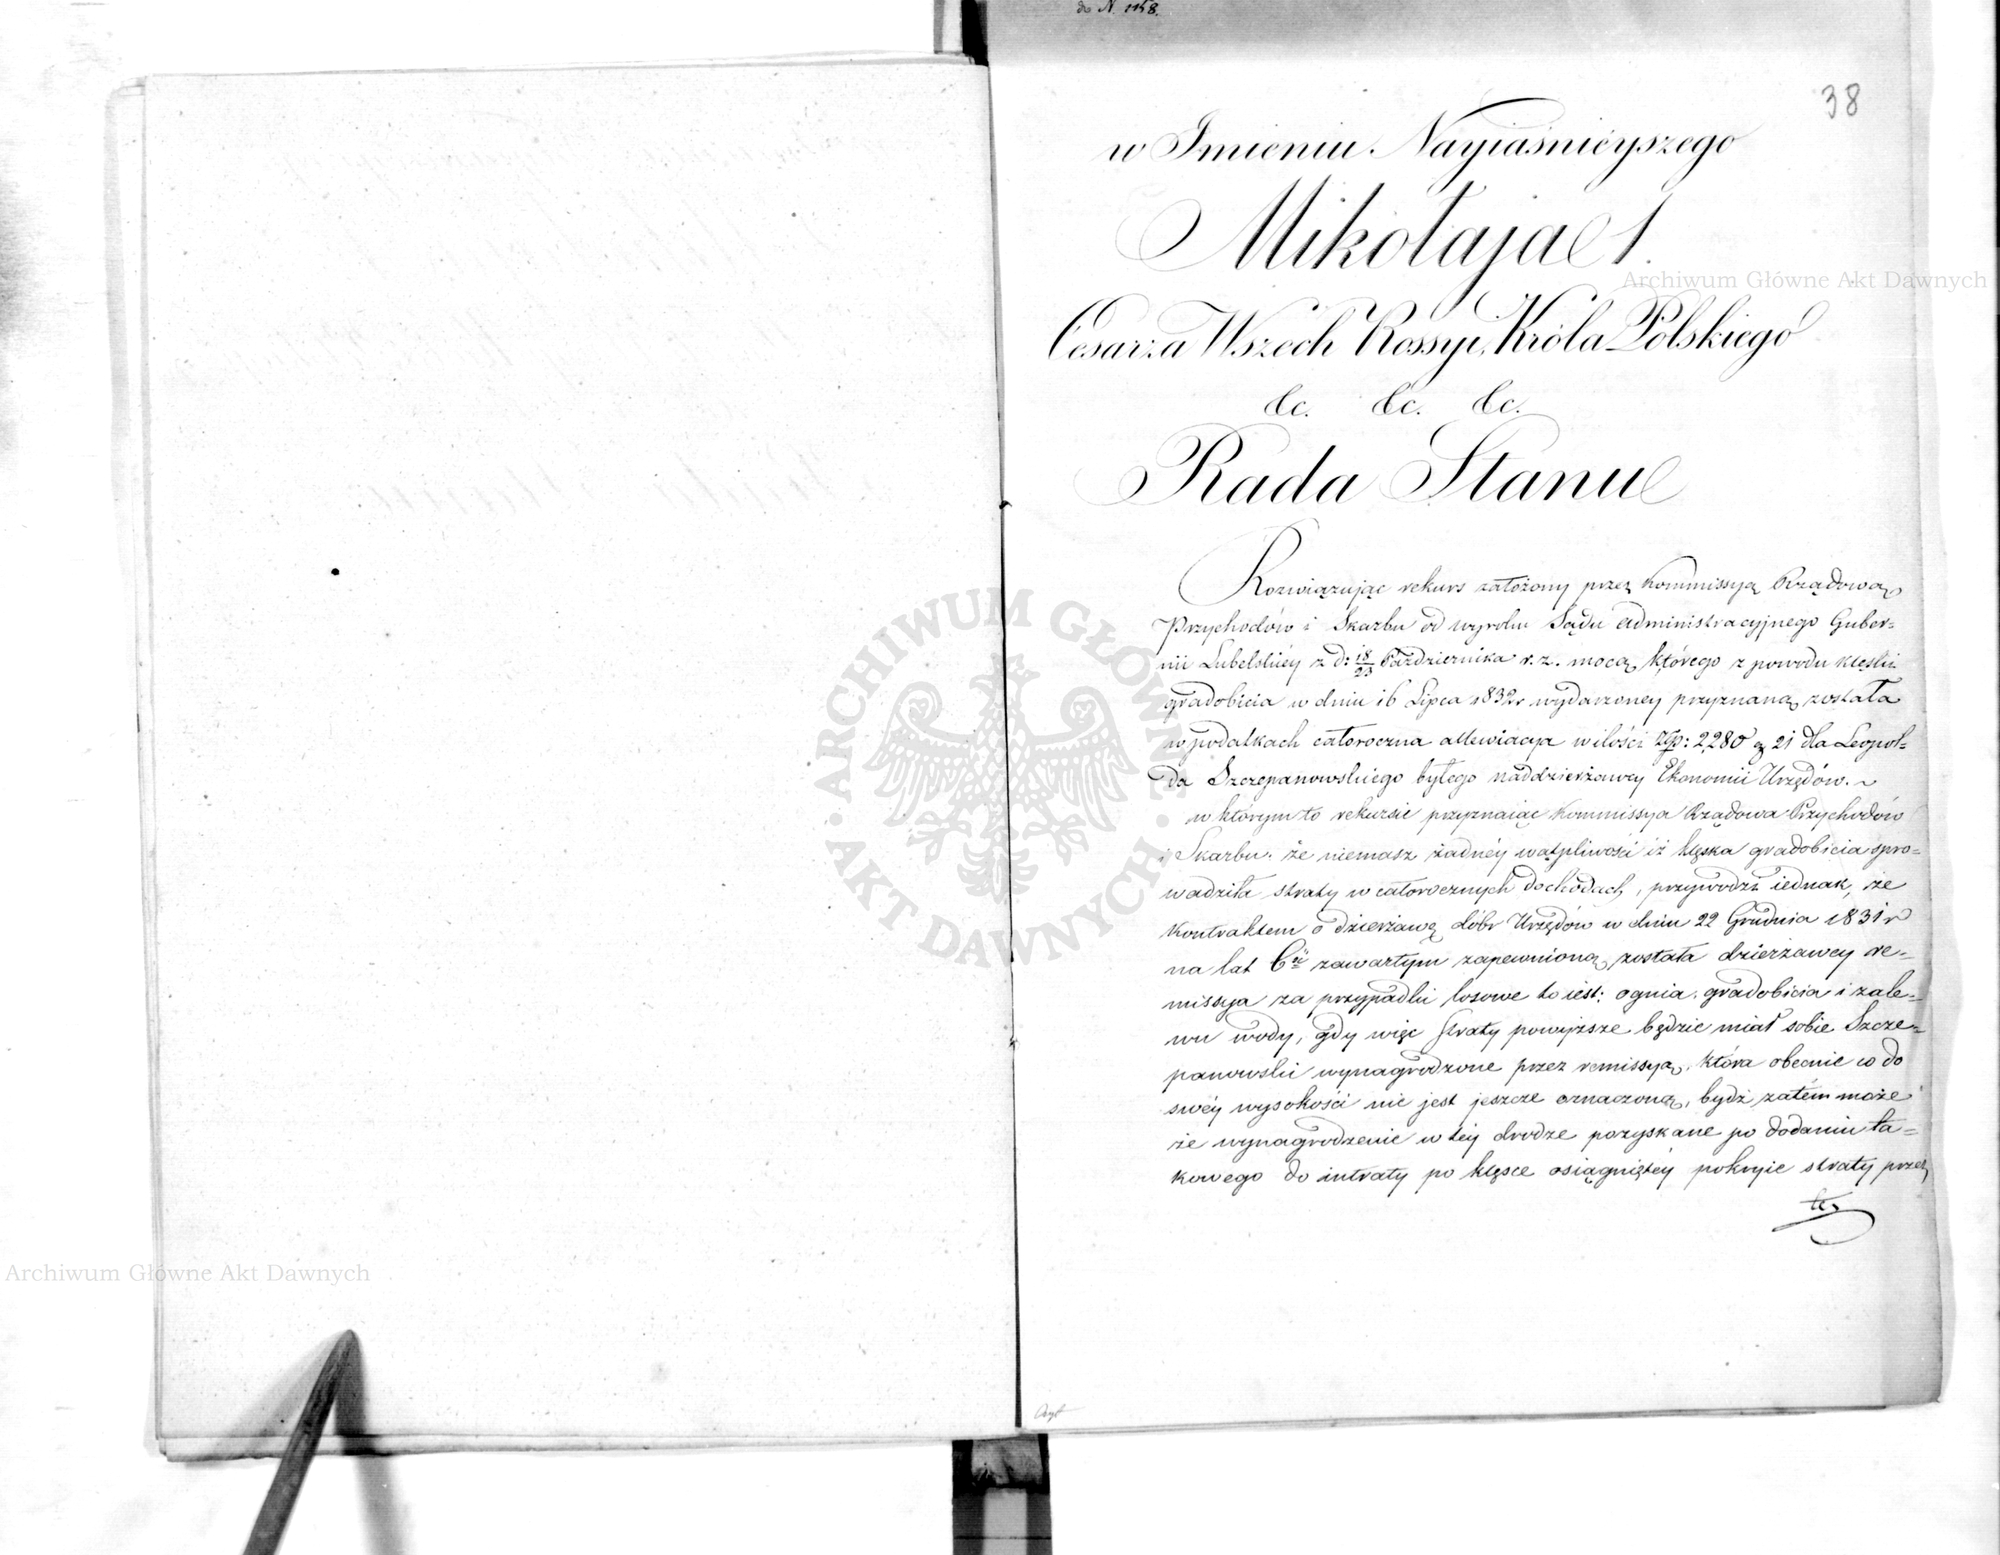 do N. 1148.
38
w Imieniu Nayiaśnieyszego
Mikołaja 1.
Cesarza Wszech Rossyi, Króla Polskiego
&c. &c. &c.
Rada Stanu
Rozwiązując rekurs założony przez Kommissyą Rządową
Przychodów i Skarbu od wyroku Sądu Administracyjnego Guber=
nii Lubelskiéy z d: 18/23 Października r. z. mocą którego z powodu klęski
gradobicia w dniu 16 Lipca 1832 r wydarzoney przyznaną została
w podatkach całoroczna allewiacya w ilości Złp: 2,280 g 21 dla Leopol=
da Szczepanowskiego byłego naddzierżawcy Ekonomii Urzędów. ~
w którym to rekursie przyznaiąc Kommissya Rządowa Przychodów
i Skarbu. że niemasz żadnéy wątpliwości iż klęska gradobicia spro=
wadziła straty w całorocznych dochodach, przywodzi iednak, że
Kontraktem o dzierżawę dóbr Urzędów w dniu 22 Grudnia 1831 r
na lat 6ść zawartym zapewnioną została dzierżawcy re=
missya za przypadki losowe to iest: ognia, gradobicia i zale=
wu wody, gdy więc straty powyższe będzie miał sobie Szcze=
panowski wynagrodzone przez remissyą, która obecnie co do
swéy wysokości nie jest jeszcze oznaczoną, bydź zatém może
że wynagrodzenie w téy drodze pozyskane po dodaniu ta=
kowego do intraty po klęsce osiągniętéy pokryie straty przez
Archiwum Główne Akt Dawnych
ARCHIWUM GŁÓWNE · AKT DAWNYCH ·
Archiwum Główne Akt Dawnych